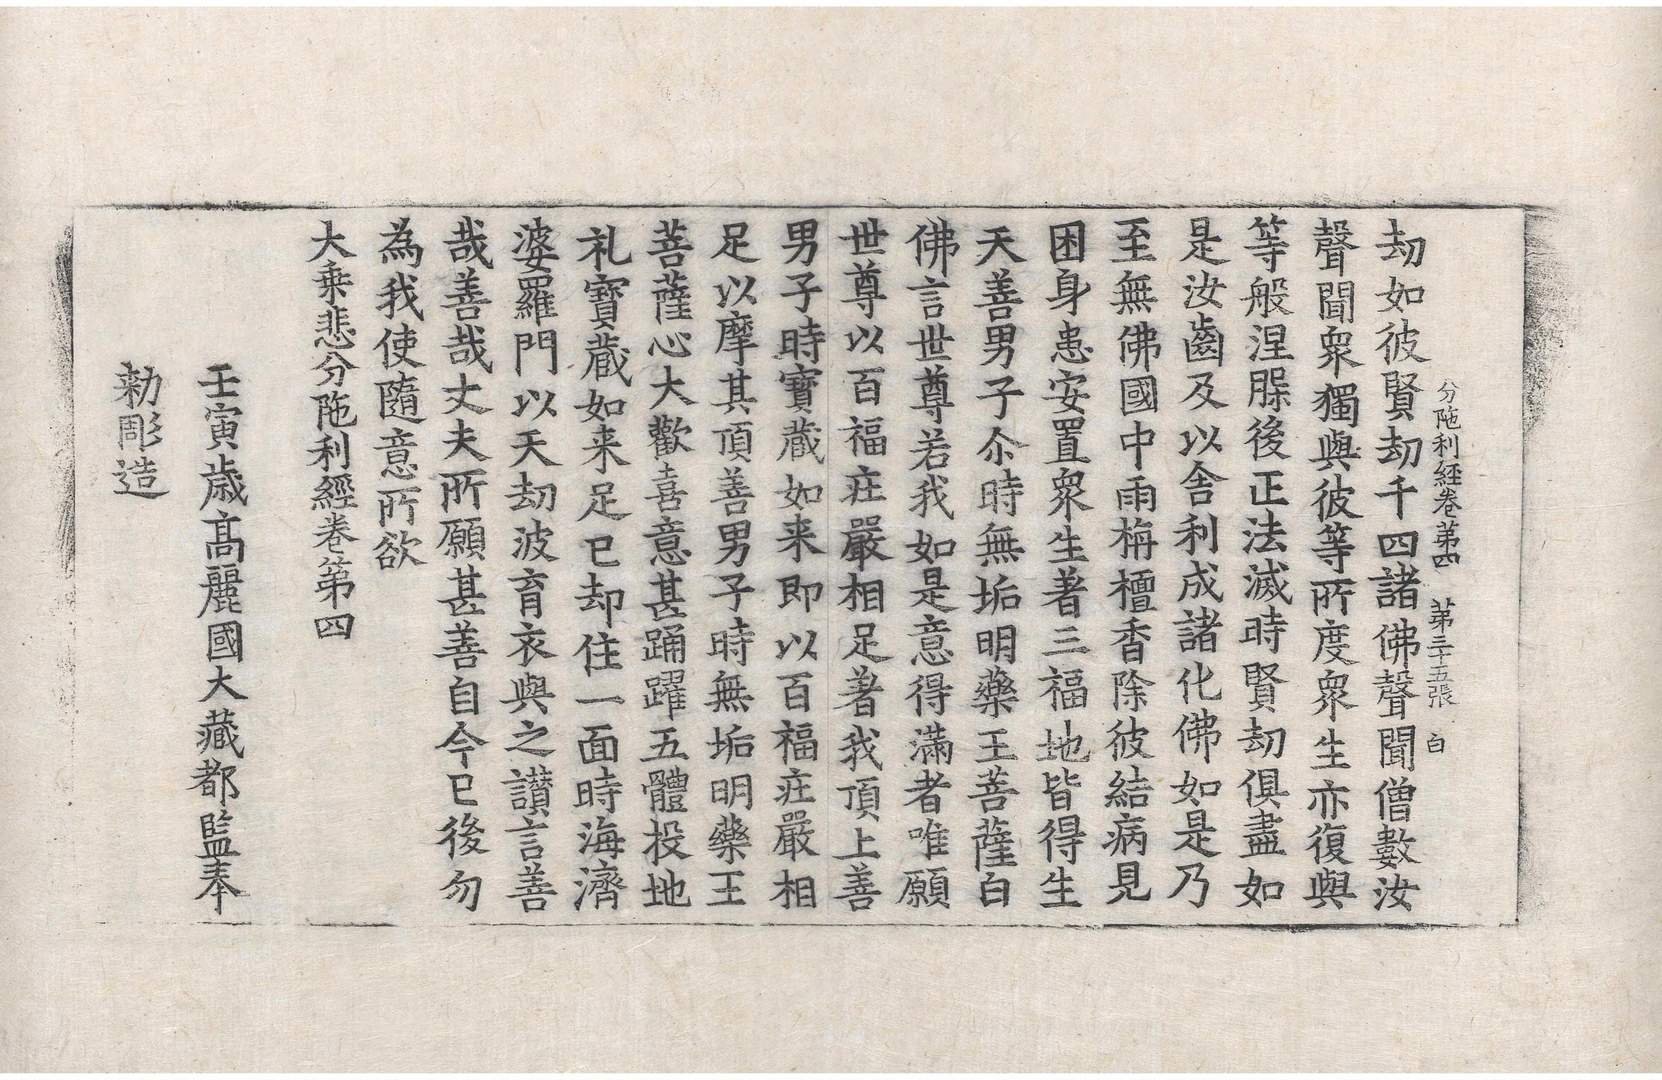 分陁利經卷第四 第三十五張 白
劫如彼賢劫千四諸佛聲聞僧數汝
聲聞衆獨與彼等所度衆生亦復與
等般涅脲後正法滅時賢劫俱盡如
是汝齒及以舍利成諸化佛如是乃
至無佛國中雨栴檀香除彼結病見
困身患安置衆生著三福地皆得生
天善男子尒時無垢明藥王菩薩白
佛言世尊若我如是意得滿者唯願
世尊以百福庄嚴相足著我頂上善
男子時寶藏如来即以百福庄嚴相
足以摩其頂善男子時無垢明藥王
菩薩心大歡喜意甚踊躍五體投地
礼寶藏如来足已却住一面時海濟
婆羅門以天劫波育衣與之讃言善
哉善哉丈夫所願甚善自今已後勿
為我使隨意所欲
大乗悲分陁利經卷第四
壬寅歳高麗國大藏都監奉
勅彫造